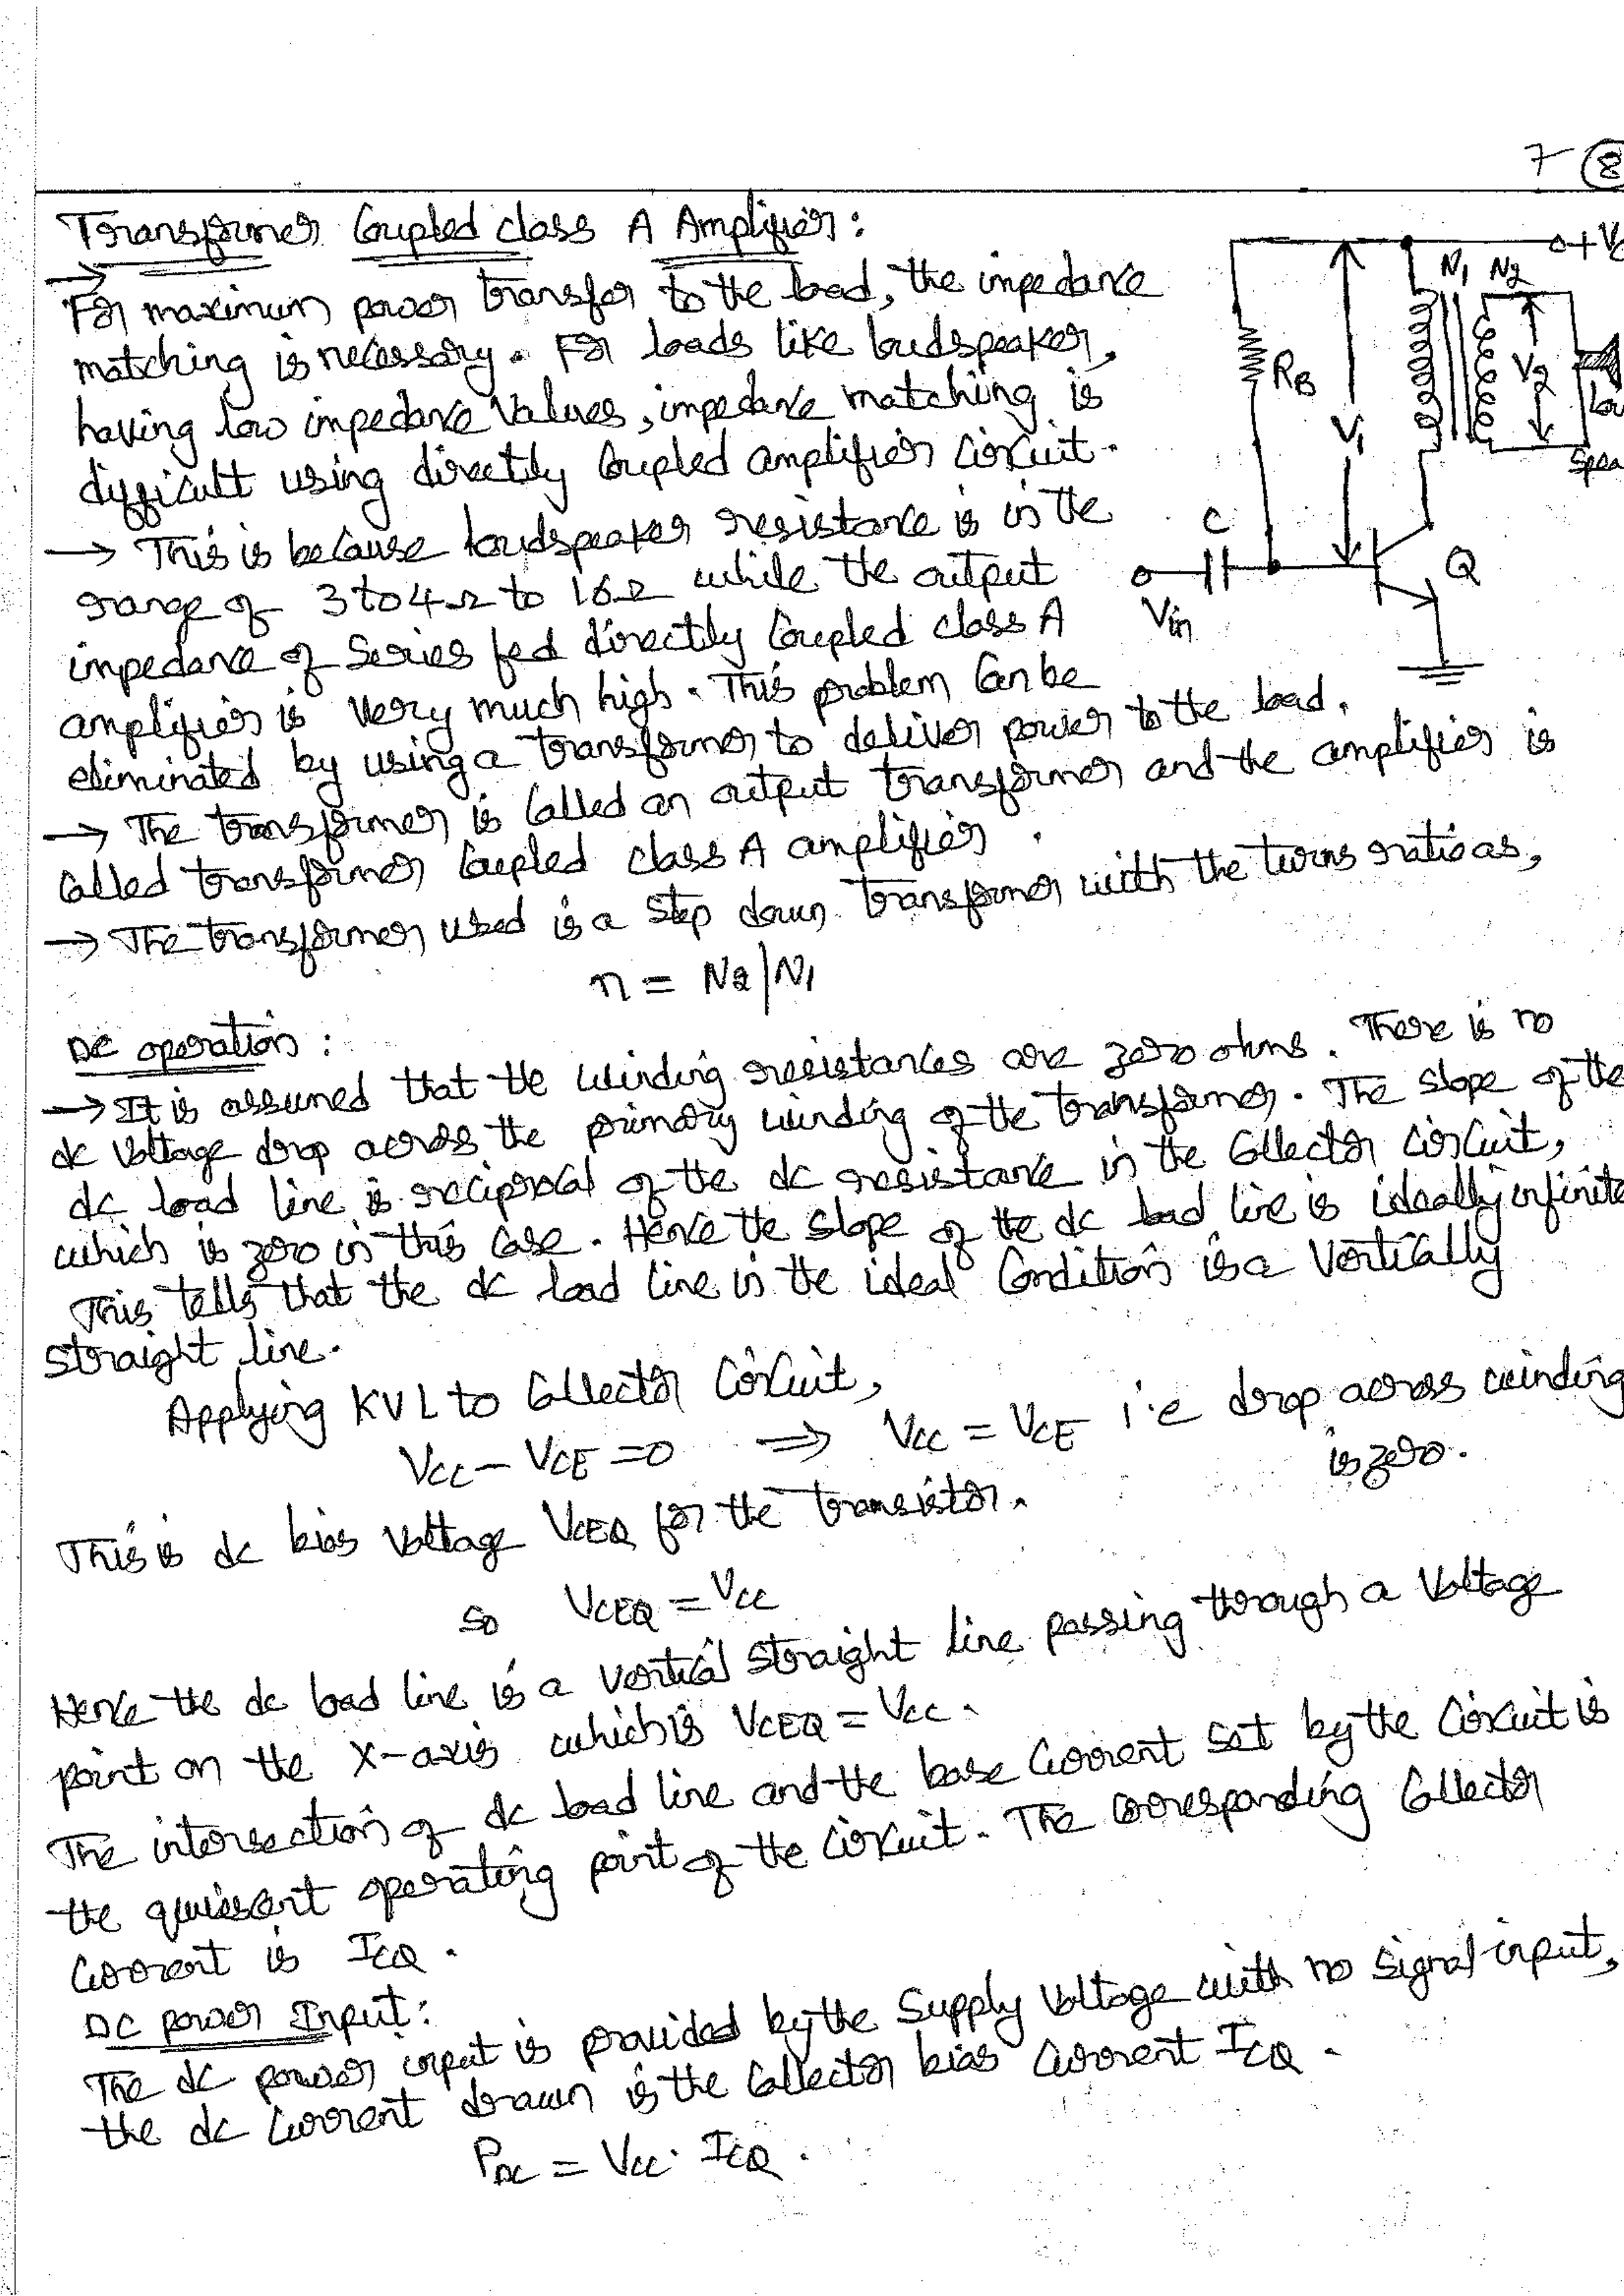 7 8
Transformer Coupled class A Amplifier:
→
For maximum power transfer to the load, the impedance
matching is necessary. For loads like loudspeaker,
having low impedance values, impedance matching is
difficult using directly coupled amplifier circuit.
→ This is because loudspeaker resistance is in the
range of 3 to 4Ω to 16Ω while the output
impedance of Series fed directly Coupled class A
amplifier is very much high. This problem Can be
eliminated by using a transformer to deliver power to the load.
→ The transformer is Called an output transformer and the amplifier is
Called transformer Coupled class A amplifier.
→ The transformer used is a step down transformer with the turns ratio as,
n = N2/N1
+V
N1 N2
RB
V1
V2
C
Vin
Q
DC operation:
→ It is assumed that the winding resistances are zero ohms. There is no
dc voltage drop across the primary winding of the transformer. The slope of the
dc load line is reciprocal of the dc resistance in the Collector circuit,
which is zero in this case. Hence the slope of the dc load line is ideally infinite
This tells that the dc load line in the ideal Condition is a vertically
straight line.
Applying KVL to Collector Circuit,
VCC - VCE = 0 ⇒ VCC = VCE i.e drop across winding
is zero.
This is dc bias voltage VCEQ for the transistor.
So VCEQ = VCC
Hence the dc load line is a vertical straight line passing through a voltage
point on the X-axis which is VCEQ = VCC.
The intersection of dc load line and the base Current set by the Circuit is
the operating point of the Circuit. The corresponding Collector
Current is ICQ.
DC power Input:
The dc power input is provided by the Supply voltage with no signal input,
the dc Current drawn is the Collector bias Current ICQ.
PDC = VCC. ICQ.